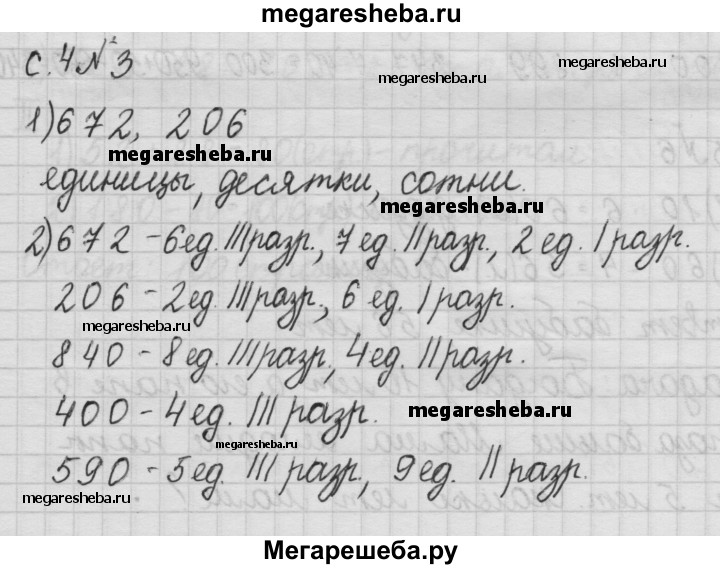 megaresheba.ru
с. 4 № 3
megaresheba.ru
1) 672, 206
megaresheba.ru
единицы, десятки, сотни.
megaresheba.ru
2) 672 - 6ед. III разр., 7 ед. II разр., 2 ед. I разр.
206 - 2ед. III разр., 6 ед. I разр.
megaresheba.ru
840 - 8 ед. III разр., 4 ед. II разр.
400 - 4 ед. III разр.
megaresheba.ru
megaresheba.ru
590 - 5 ед. III разр., 9 ед. II разр.
megaresheba.ru
megaresheba.ru
Мегарешеба.ру